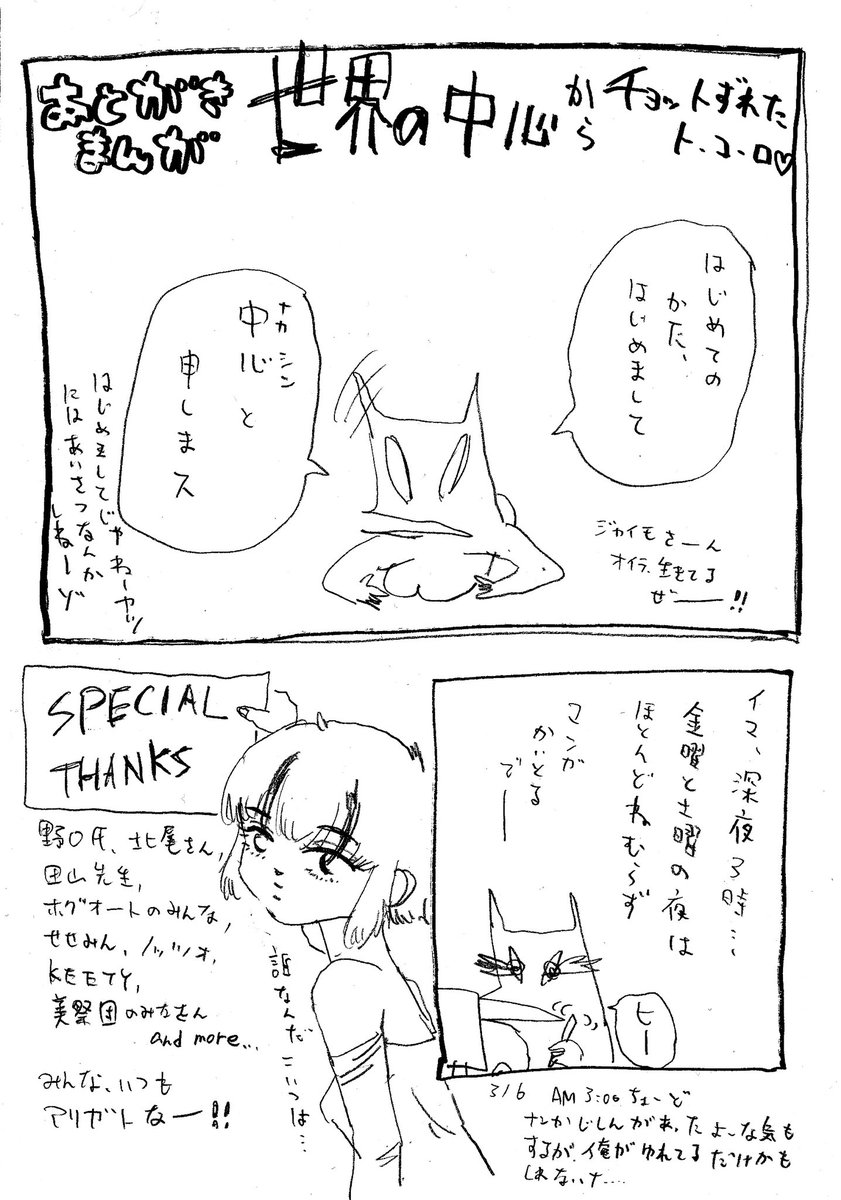 あとがき
まんが
世界の中心
から
チョットずれた
ト、コ、ロ♡
はじめての
かた、
はじめまして
ナカ シン
中心と
申しまス
はじめましてじゃねーヤツ
にはあいさつなんか
しねーゾ
ジャイモさーん
オイラ、生きてる
ぜー!!
イマ、深夜3時…
金曜と土曜の夜は
ほとんどねむらず
マンガ
かいとる
でー
ヒー
SPECIAL
THANKS
野口氏、北尾さん,
田山先生,
ホグオートのみんな,
せせみん、ノッツォ,
KEETY,
美祭団のみなさん
and more...
みんな、いつも
アリガトなー!!
誰なんだこいつは…
3/6 AM 3:00 ちょーど
ナンかじしんがあったよーな気も
するが、俺がゆれてるだけかも
しれないナ....